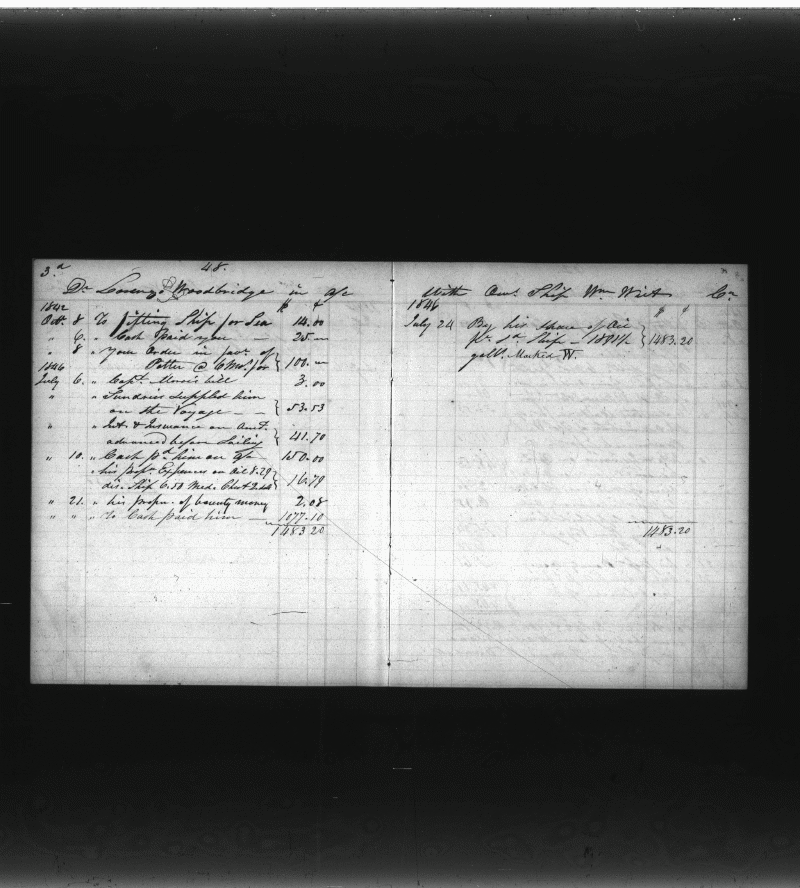 3.d
48.
Dr. Lorenzo D Woodbridge in a/c
1842 $ c
Oct. 8 To fitting Ship for Sea 14.00
" 6. " Cash paid you — 25.—
" 8 " Your Order in favr. of
Potter @ 6 Mos. for } 100.—
1846
July 6. " Capt. bill 3.00
" " Sundries supplied him
on the Voyage — — } 53.53
" " Int. & Insurance on amt.
advanced before Sailing } 41.70
" 10. " Cash pd. him on a/c 150.00
" his propn. Expenses on Oil 8.29
dis. Ship 6.50 Med. Chest 2.00 } 16.79
" 21. " his propn. of bounty money 2.08
" " " To Cash paid him — 1077.10
1483 20
With Own. Ship Wm Wirt Cr
1846 $ c
July 24 By his share of Oil
pr. sd. Ship — } 1483.20
galls. Marked W.
1483.20